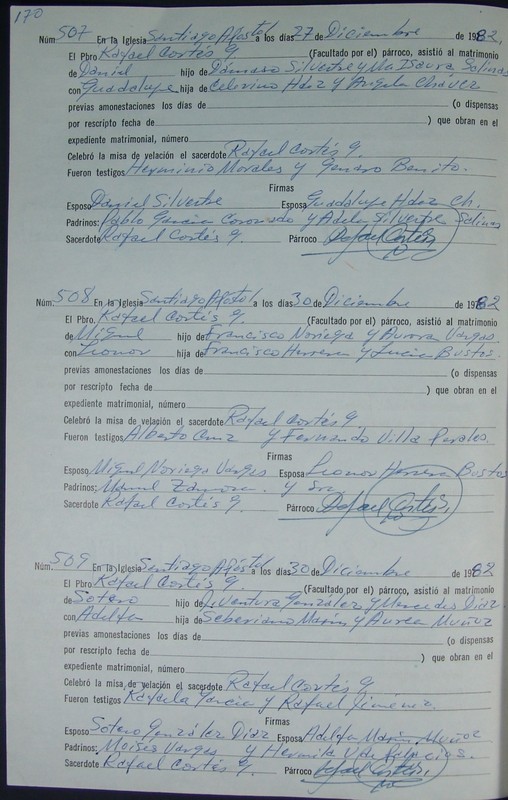 170
Núm. 507 En la Iglesia Santiago Apóstol a los días 27 de Diciembre de 1982.
El Pbro Rafael Cortés G. (Facultado por el) párroco, asistió al matrimonio
de Daniel hijo de Dámaso Silvestre y Ma Isaura Salinas
con Guadalupe hija de Celerino Hdez y Angela Chávez
previas amonestaciones los días de (o dispensas
por rescripto fecha de ) que obran en el
expediente matrimonial, número
Celebró la misa de velación el sacerdote Rafael Cortés G.
Fueron testigos Herminio Morales y Genaro Benito.
Firmas
Esposo Daniel Silvestre Esposa Guadalupe Hdez Ch.
Padrinos: Pablo García Coronado y Adela Silvestre Salinas
Sacerdote Rafael Cortés G. Párroco Rafael Cortés
Núm. 508 En la Iglesia Santiago Apóstol a los días 30 de Diciembre de 1982
El Pbro. Rafael Cortés G. (Facultado por el) párroco, asistió al matrimonio
de Miguel hijo de Francisco Noriega y Aurora Vargas
con Leonor hija de Francisco Herrera y Lucia Bustos.
previas amonestaciones los días de (o dispensas
por rescripto fecha de ) que obran en el
expediente matrimonial, número
Celebró la misa de velación el sacerdote Rafael Cortés G
Fueron testigos Alberto Cruz y Fernando Villa Perales
Firmas
Esposo Miguel Noriega Vargas Esposa Leonor Herrera Bustos
Padrinos: Manuel Zamora. y Sra
Sacerdote Rafael Cortés G. Párroco Rafael Cortés
Núm. 509 En la Iglesia Santiago Apóstol a los días 30 de Diciembre de 1982
El Pbro Rafael Cortés G. (Facultado por el) párroco, asistió al matrimonio
de Sotero hijo de Ventura González y Mercedes Diaz
con Adelfa hija de Seberiano Marin y Aurea Muñoz
previas amonestaciones los días de (o dispensas
por rescripto fecha de ) que obran en el
expediente matrimonial, número
Celebró la misa de velación el sacerdote Rafael Cortés G
Fueron testigos Rafaela García y Rafael Jiménez.
Firmas
Esposo Sotero González Diaz Esposa Adelfa Marin Muñoz
Padrinos: Moises Vargas y Hermila V de
Sacerdote Rafael Cortés G. Párroco Rafael Cortés